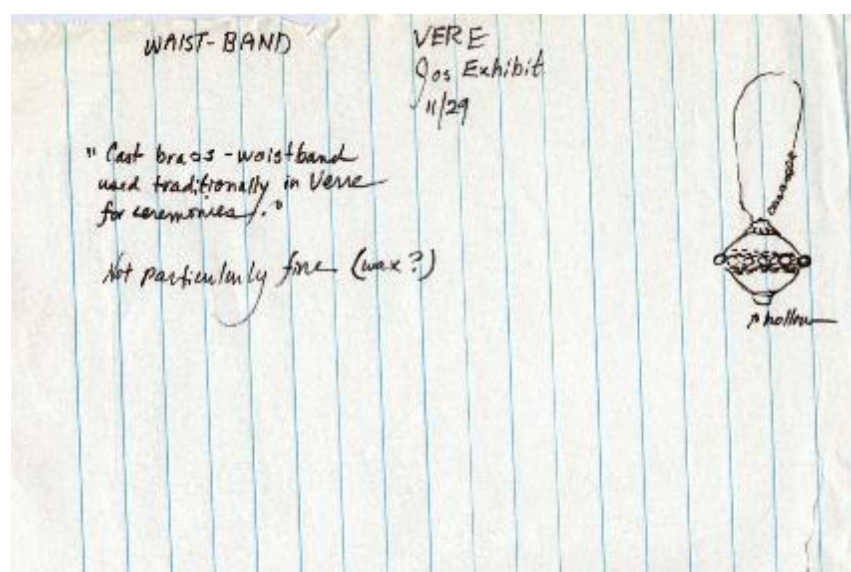 WAIST-BAND
VERE
Jos Exhibit
11/29
"Cast brass-waistband
used traditionally in Verre
for ceremonies."
Not particularly fine (wax?)
hollow